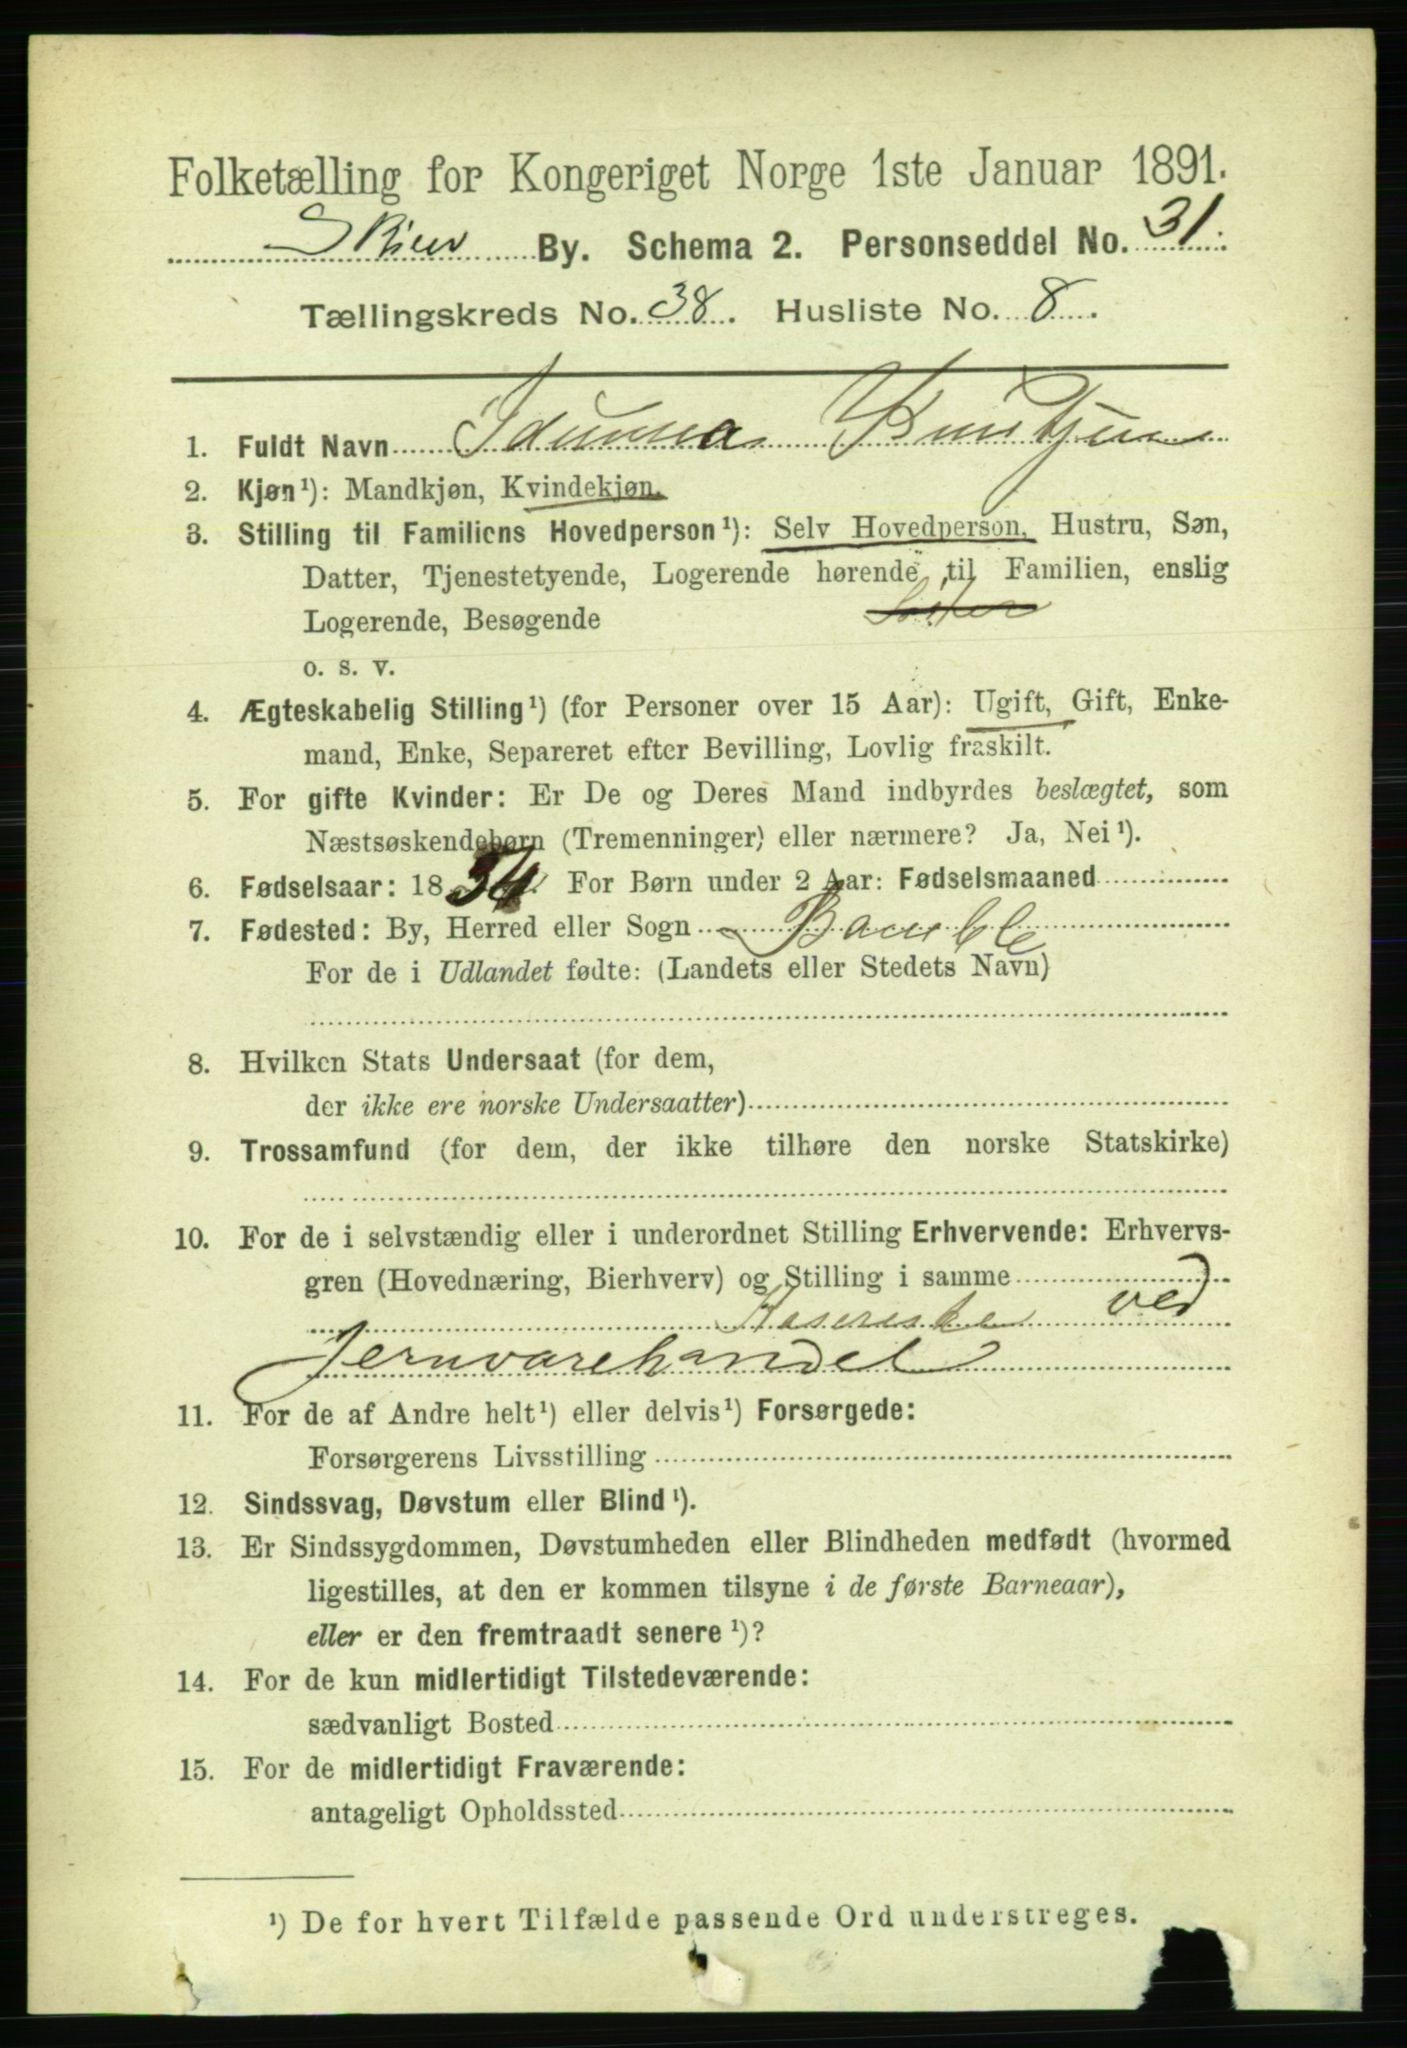 Folketælling for Kongeriget Norge 1ste Januar 1891.
Skien By. Schema 2. Personseddel No. 31.
Tællingskreds No. 38. Husliste No. 8.
1. Fuldt Navn Idunna Knudsen
2. Kjøn¹): Mandkjøn, Kvindekjøn.
3. Stilling til Familiens Hovedperson¹): Selv Hovedperson, Hustru, Søn,
Datter, Tjenestetyende, Logerende hørende til Familien, enslig
Logerende, Besøgende
o. s. v.
4. Ægteskabelig Stilling¹) (for Personer over 15 Aar): Ugift, Gift, Enke-
mand, Enke, Separeret efter Bevilling, Lovlig fraskilt.
5. For gifte Kvinder: Er De og Deres Mand indbyrdes beslægtet, som
Næstsøskendebørn (Tremenninger) eller nærmere? Ja, Nei¹).
6. Fødselsaar: 1854. For Børn under 2 Aar: Fødselsmaaned
7. Fødested: By, Herred eller Sogn Bamble
For de i Udlandet fødte: (Landets eller Stedets Navn)
8. Hvilken Stats Undersaat (for dem,
der ikke ere norske Undersaatter)
9. Trossamfund (for dem, der ikke tilhøre den norske Statskirke)
10. For de i selvstændig eller i underordnet Stilling Erhvervende: Erhvervs-
gren (Hovednæring, Bierhverv) og Stilling i samme
Kasererske ved
Jernvarehandel
11. For de af Andre helt¹) eller delvis¹) Forsørgede:
Forsørgerens Livsstilling
12. Sindssvag, Døvstum eller Blind¹).
13. Er Sindssygdommen, Døvstumheden eller Blindheden medfødt (hvormed
ligestilles, at den er kommen tilsyne i de første Barneaar),
eller er den fremtraadt senere¹)?
14. For de kun midlertidigt Tilstedeværende:
sædvanligt Bosted
15. For de midlertidigt Fraværende:
antageligt Opholdssted
¹) De for hvert Tilfælde passende Ord understreges.